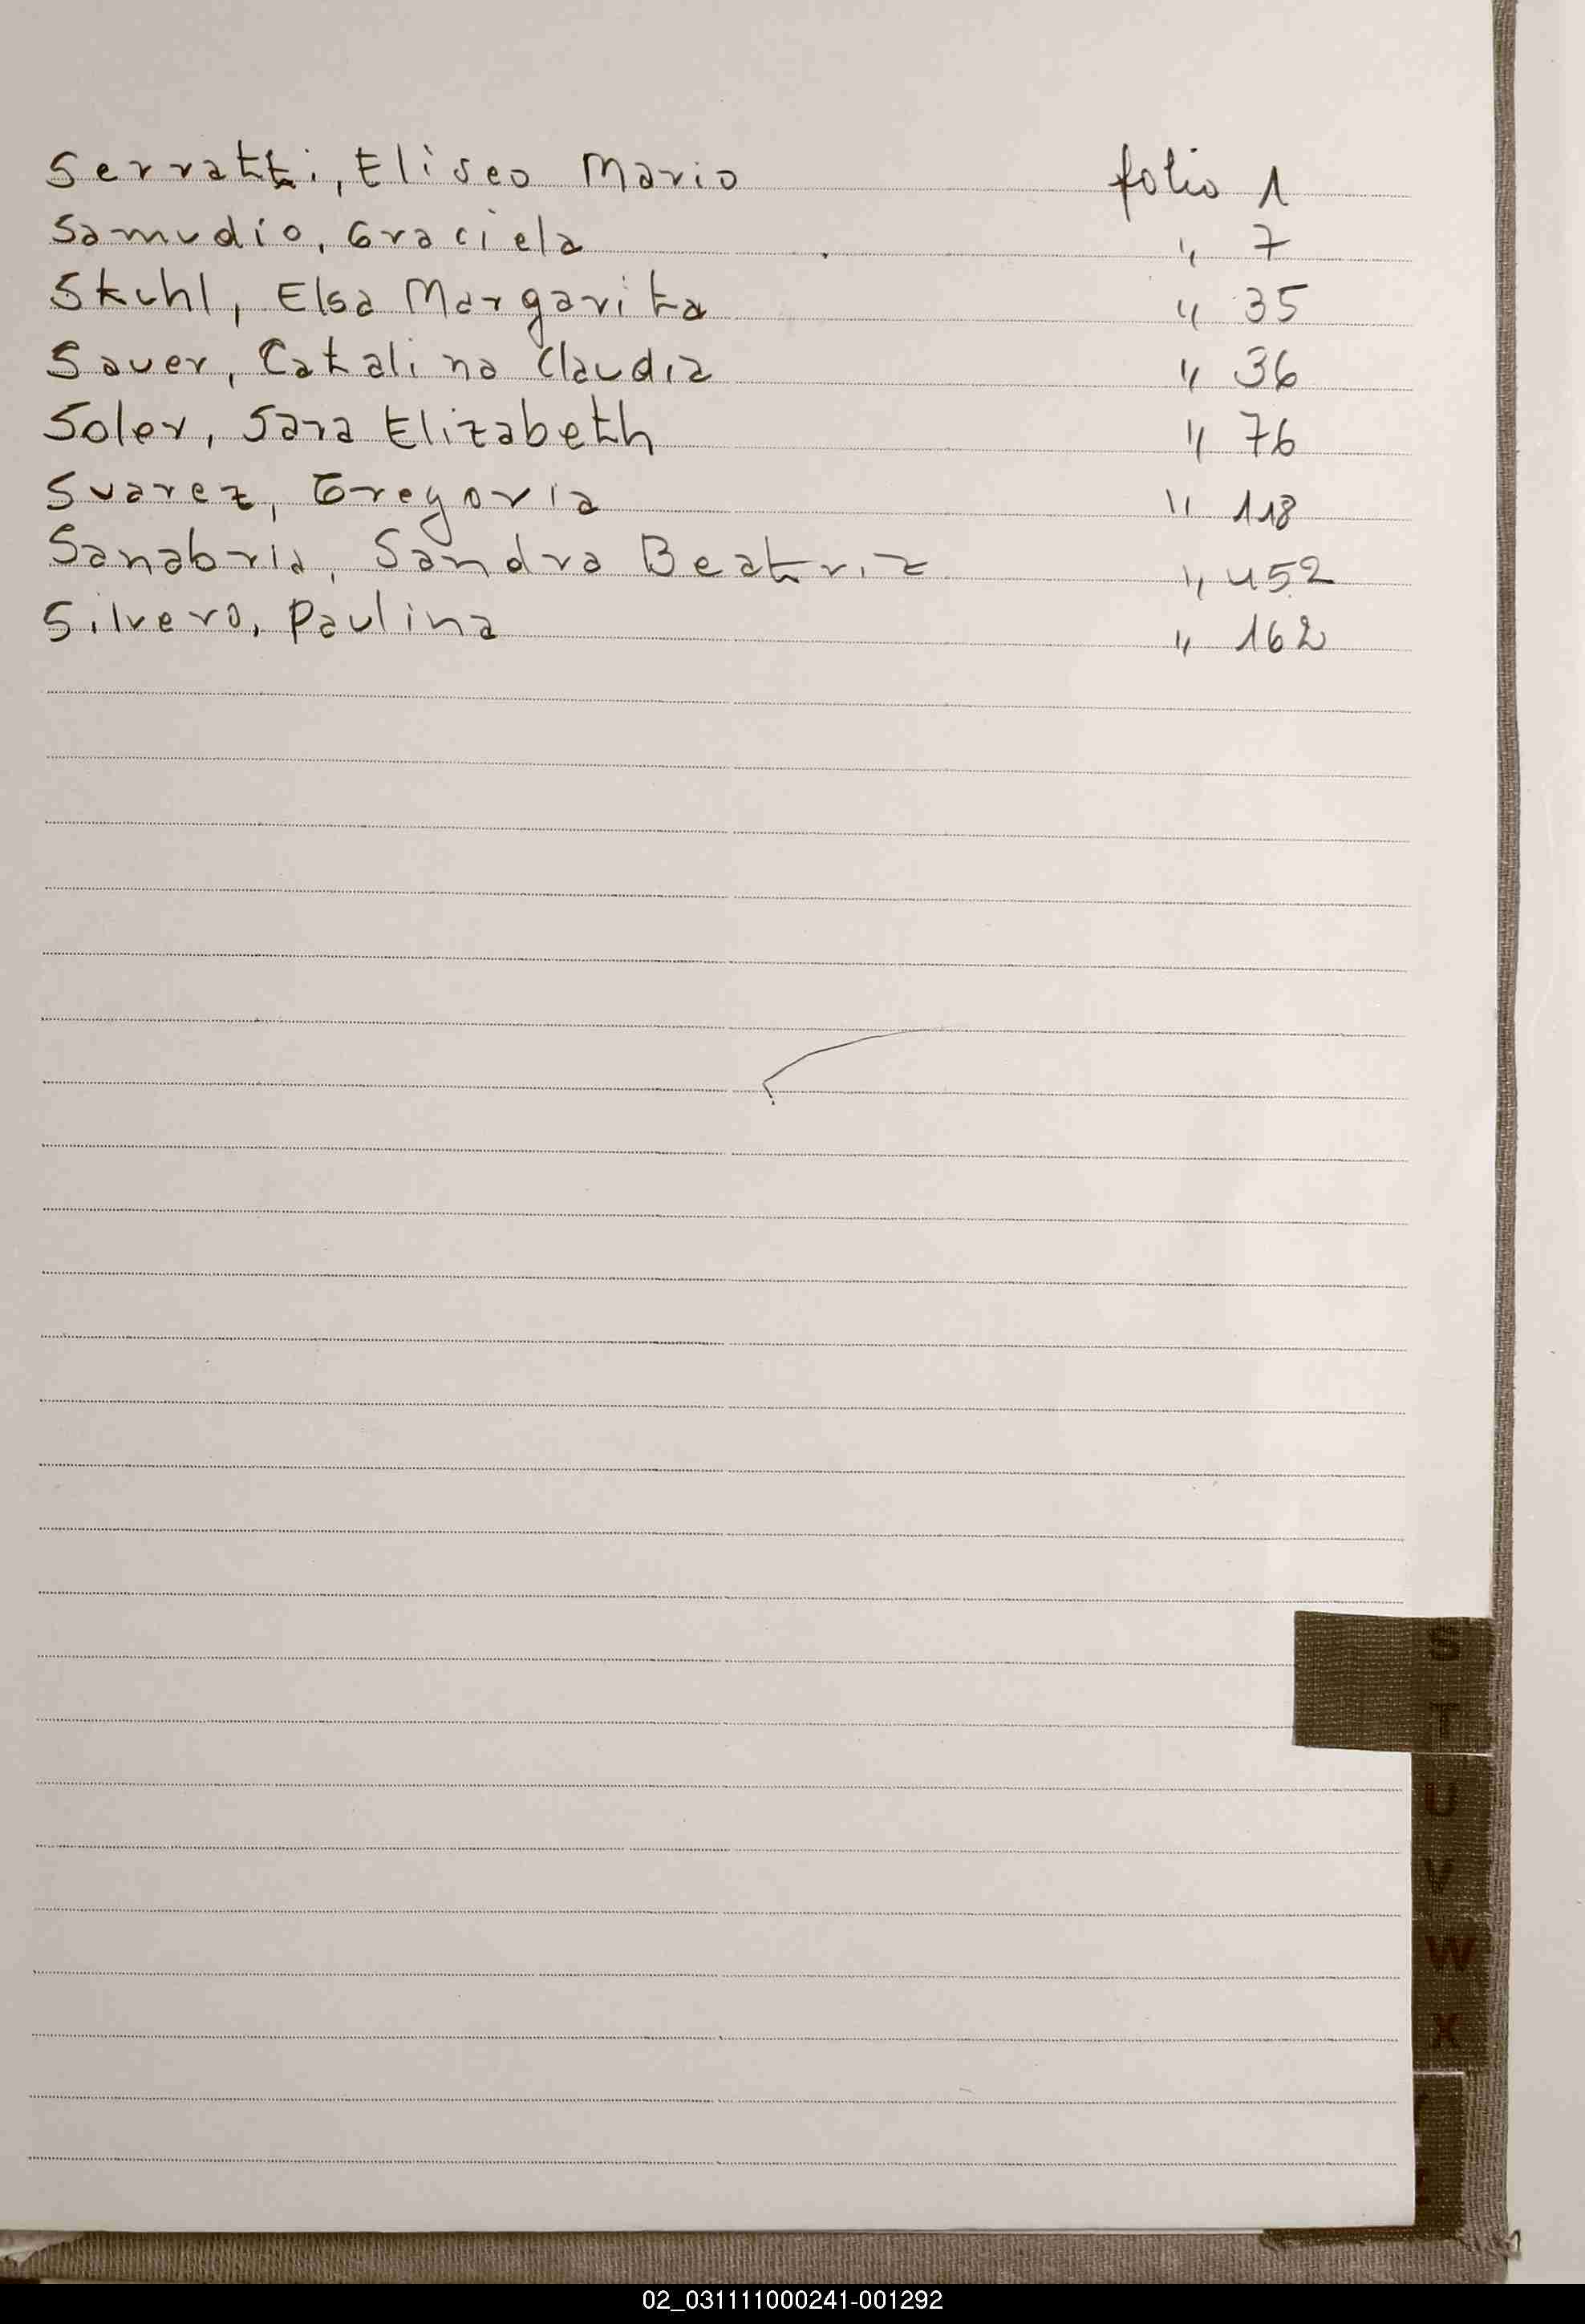 Serratti, Eliseo Mario folio 1
Samudio, Graciela " 7
Stuhl, Elsa Margarita " 35
Sauer, Catalina Claudia " 36
Soler, Sara Elizabeth " 76
Suarez, Gregoria " 118
Sanabria, Sandra Beatriz "
Silvero, Paulina " 162
S
T
U
V
W
X
02_031111000241-001292